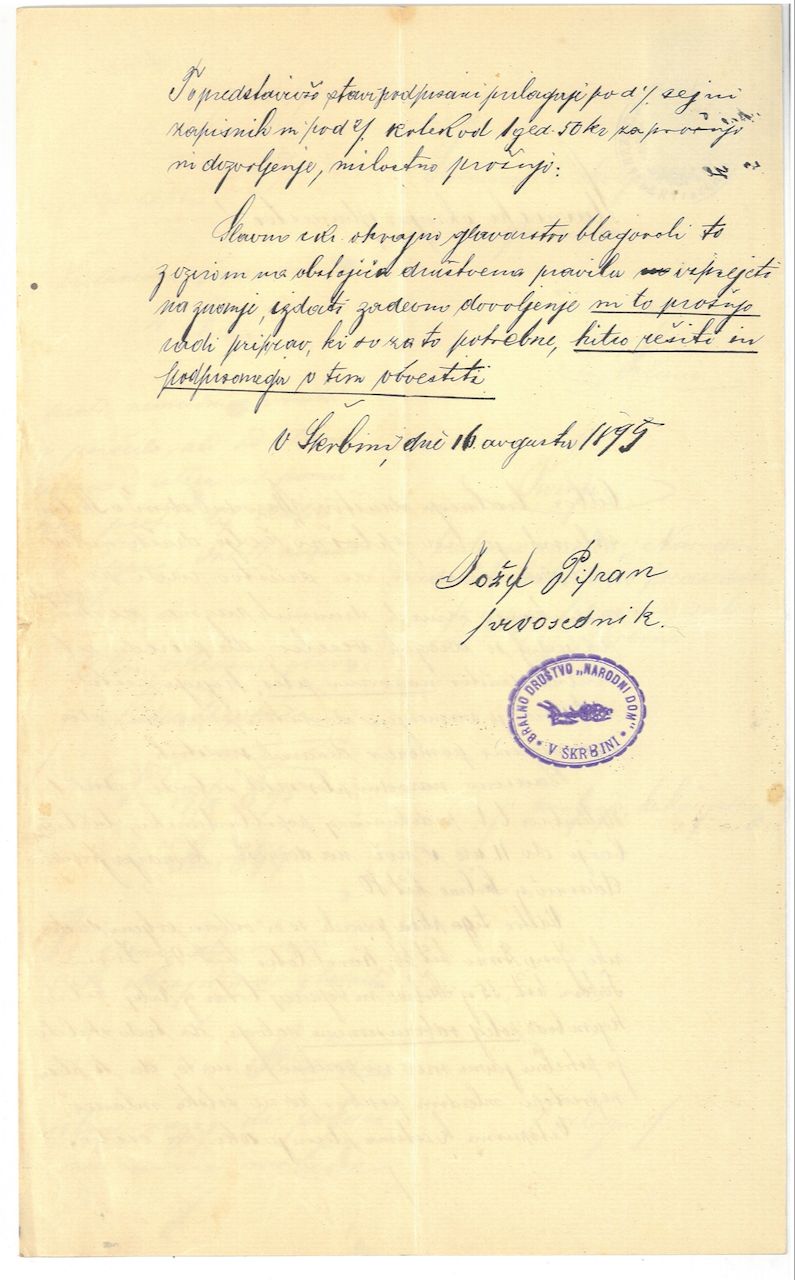 To predstavivšo stavi podpisani prilagaji pod 1/. sejni
zapisnik in pod 2/. kolek od 1 gld. 50 kr za prošnjo
in dozvoljenje, milostno prošnjo:
Slavno c. kr. okrajno glavarstvo blagovoli to
z ozirom na obstoječa društvena pravila vzprejeti
na znanje, izdati zadevno dovoljenje in to prošnjo
radi priprav, ki so za to potrebne, hitro rešiti in
podpisanega o tem obvestiti.
V Škrbini, dné 16. avgusta 1895
Jožef Pipan
prvosednik.
BRALNO DRUŠTVO „NARODNI DOM"
V ŠKRBINI